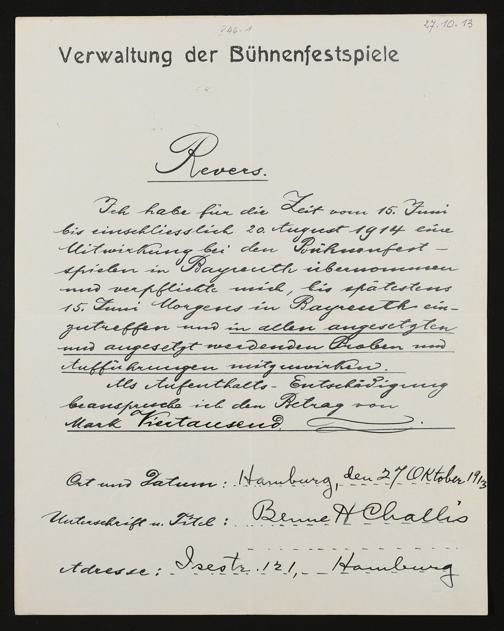 746-1
27.10.13
Verwaltung der Bühnenfestspiele
Revers.
Ich habe für die Zeit vom 15. Juni
bis einschliesslich 20. August 1914 eine
Mitwirkung bei den Bühnenfest-
spielen in Bayreuth übernommen
und verpflichte mich, bis spätestens
15. Juni Morgens in Bayreuth ein-
zutreffen und in allen angesetzten
und angesetzt werdenden Proben und
Aufführungen mitzuwirken.
Als Aufenthalts-Entschädigung
beanspruche ich den Betrag von
Mark Viertausend.
Ort und Datum: Hamburg, den 27 Oktober 1913
Unterschrift u. Titel: Bennet Challis
Adresse: Isestr. 121, Hamburg